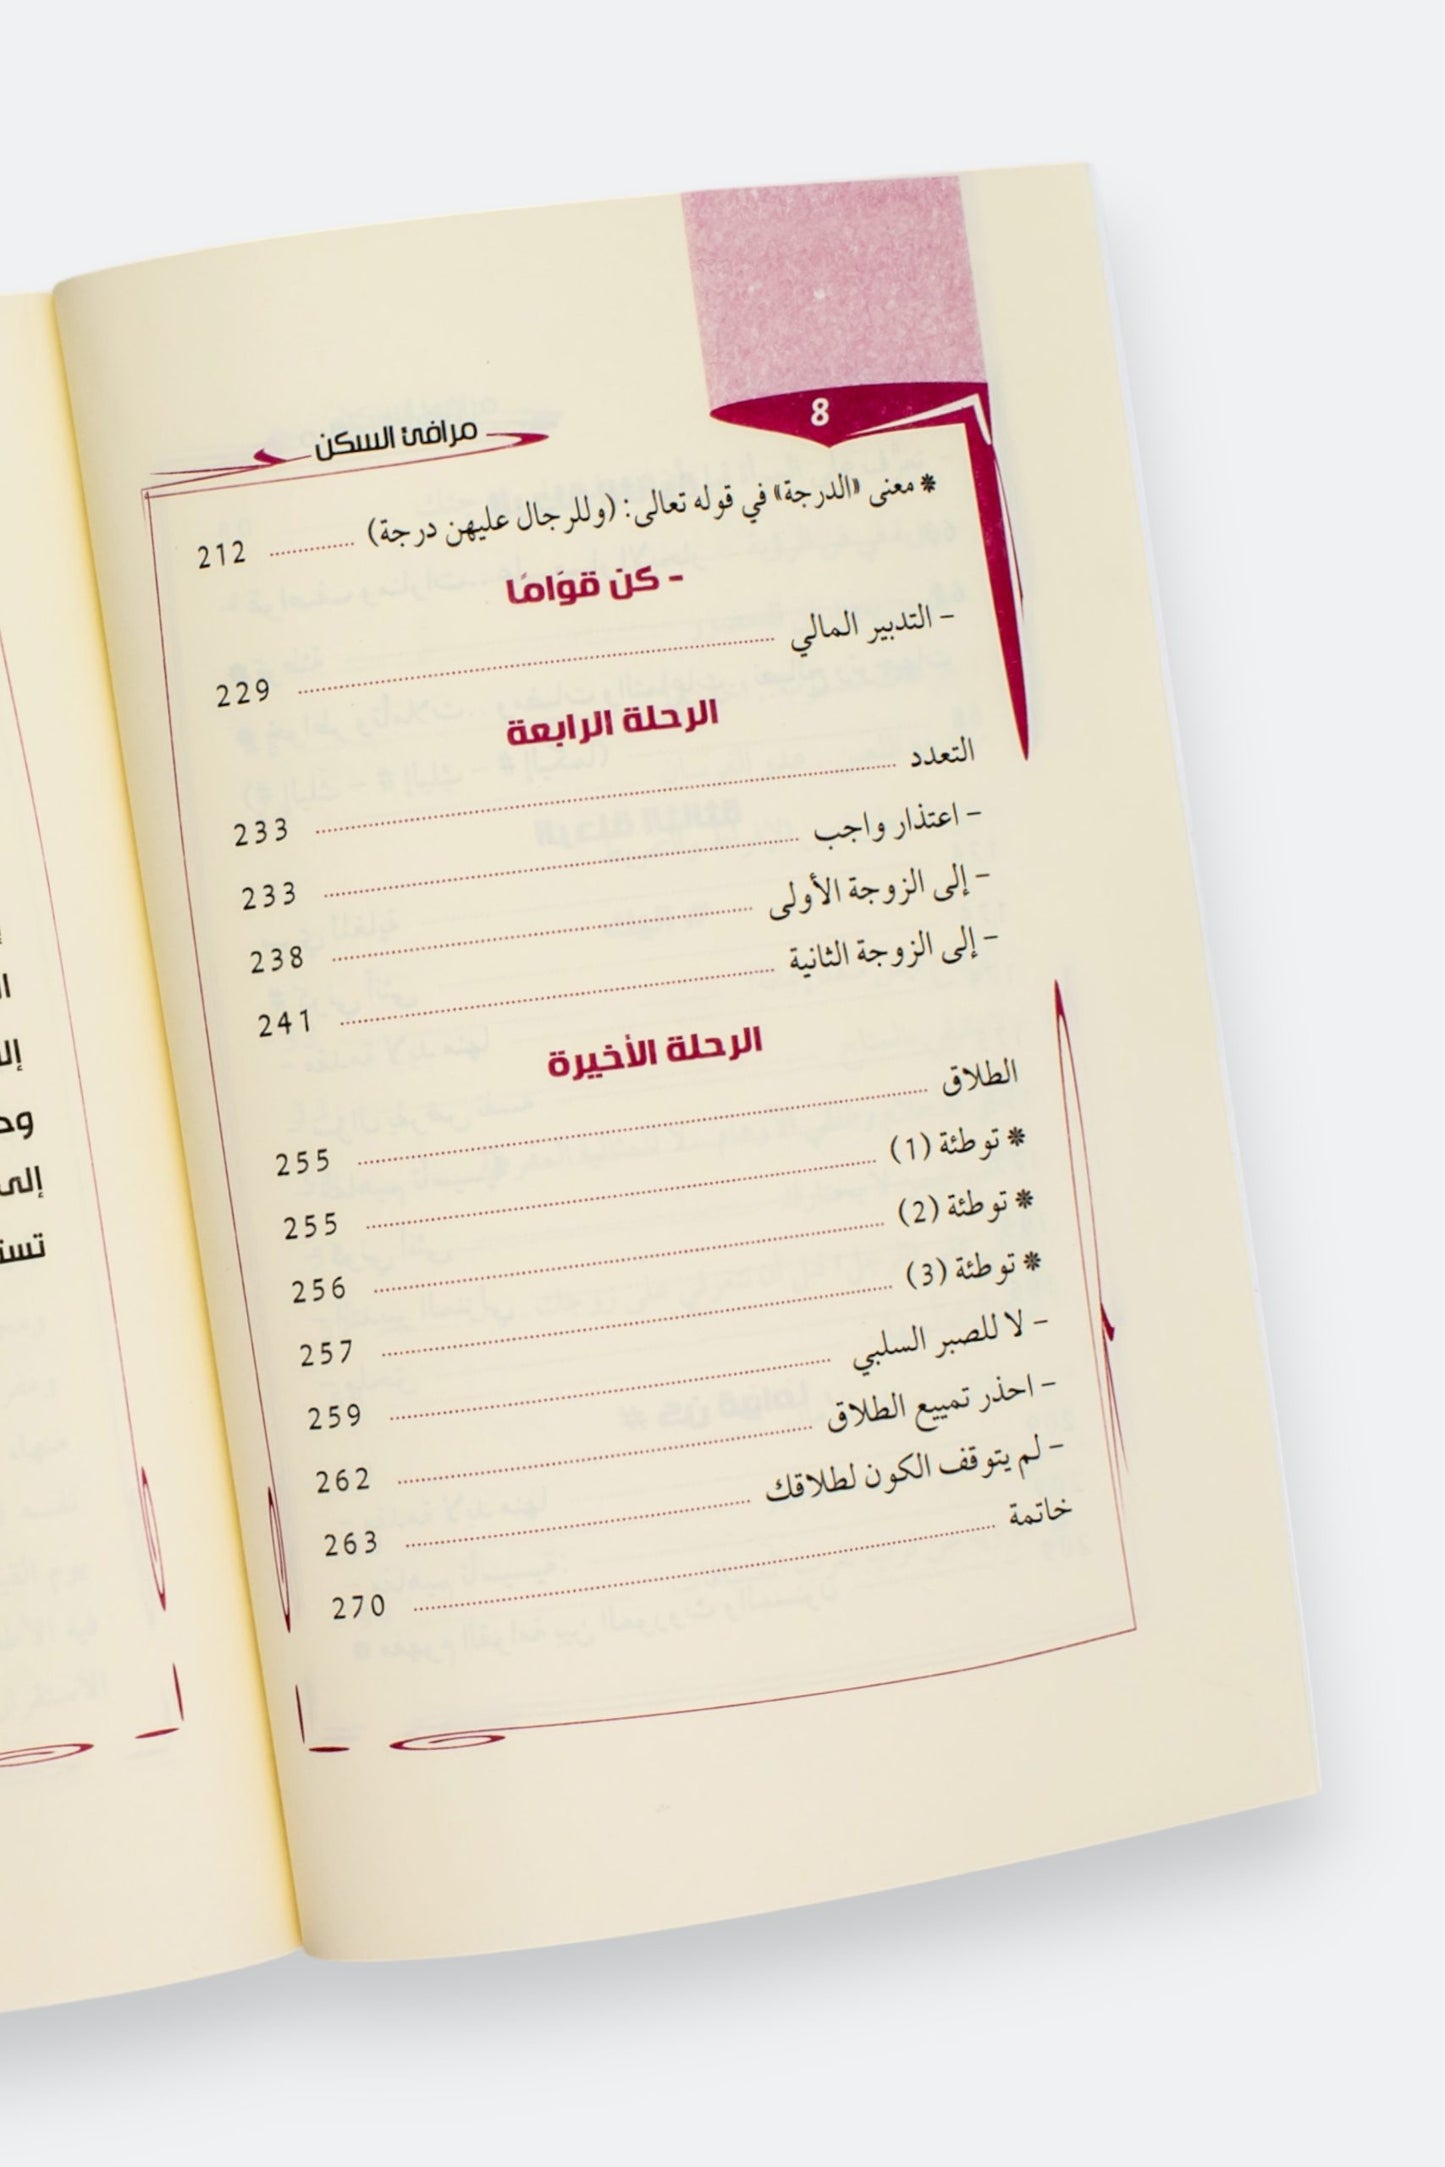 8
مرافئ السكن
* معنى «الدرجة» في قوله تعالى: (وللرجال عليهن درجة) 212
- كن قوّامًا
- التدبير المالي 229
الرحلة الرابعة
التعدد 233
- اعتذار واجب 233
- إلى الزوجة الأولى 238
- إلى الزوجة الثانية 241
الرحلة الأخيرة
الطلاق 255
* توطئة (1) 255
* توطئة (2) 256
* توطئة (3) 257
- لا للصبر السلبي 259
- احذر تمييع الطلاق 262
- لم يتوقف الكون لطلاقك 263
خاتمة 270